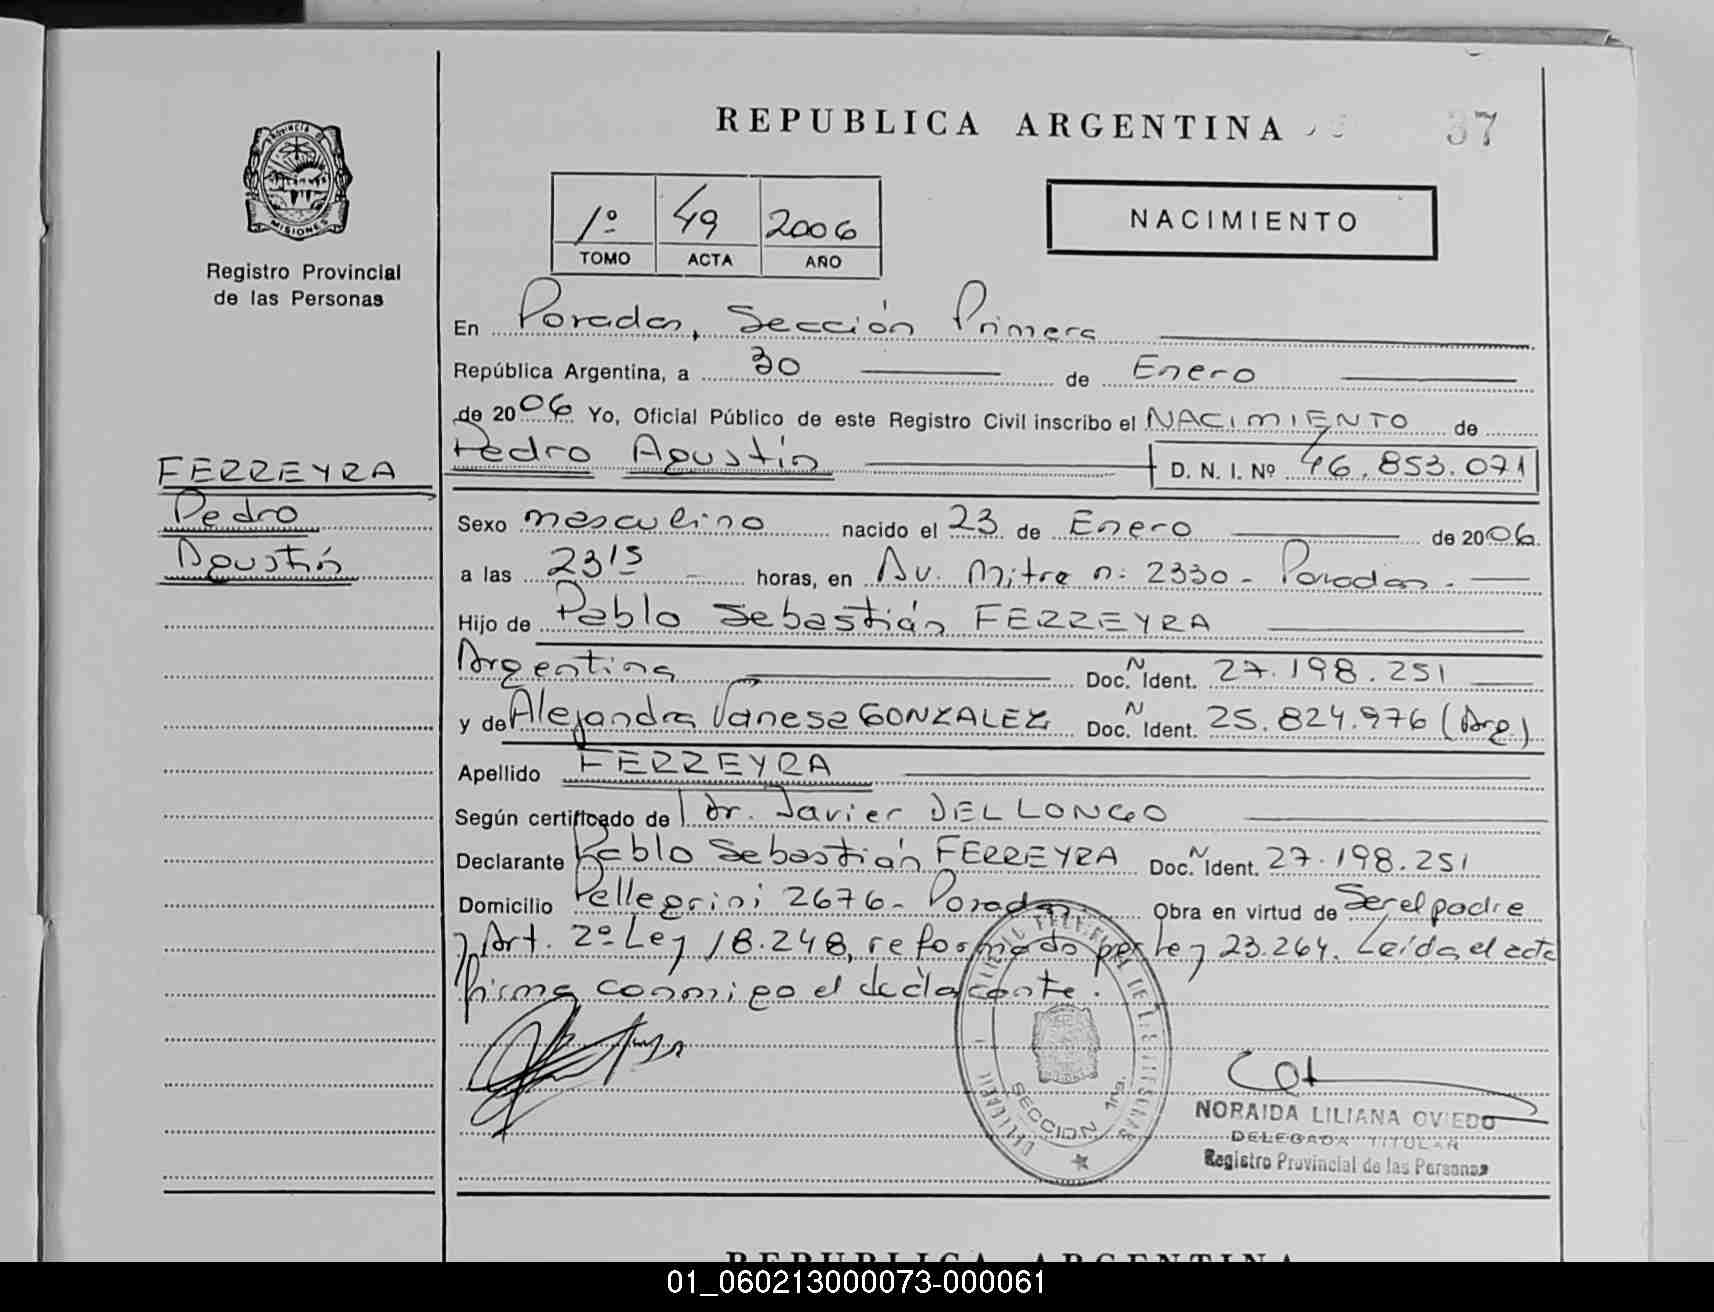 REPUBLICA ARGENTINA
37
PROVINCIA DE
MISIONES
Registro Provincial
de las Personas
1º 49 2006
TOMO ACTA AÑO
NACIMIENTO
En Posadas, Sección Primera
República Argentina, a 30 de Enero
de 2006 Yo, Oficial Público de este Registro Civil inscribo el NACIMIENTO de
Pedro Agustín D. N. I. Nº 46.853.071
FERREYRA
Pedro
Agustín
Sexo masculino nacido el 23 de Enero de 2006.
a las 2315 horas, en Av. Mitre nº 2330 - Posadas.
Hijo de Pablo Sebastián FERREYRA
Argentina Doc. N Ident. 27.198.251
y de Alejandra Vanesa GONZALEZ Doc. N Ident. 25.824.976 (Arg.)
Apellido FERREYRA
Según certificado de Dr. Javier DELLONGO
Declarante Pablo Sebastián FERREYRA Doc. N Ident. 27.198.251
Domicilio Pellegrini 2676 - Posadas. Obra en virtud de Ser el padre
y Art. 2º Ley 18.248, reformado por Ley 23.264. Leída el acta
firma conmigo el declarante.
SECCION 1ra.
NORAIDA LILIANA OVIEDO
DELEGADA TITULAR
Registro Provincial de las Personas
REPUBLICA ARGENTINA
01_060213000073-000061